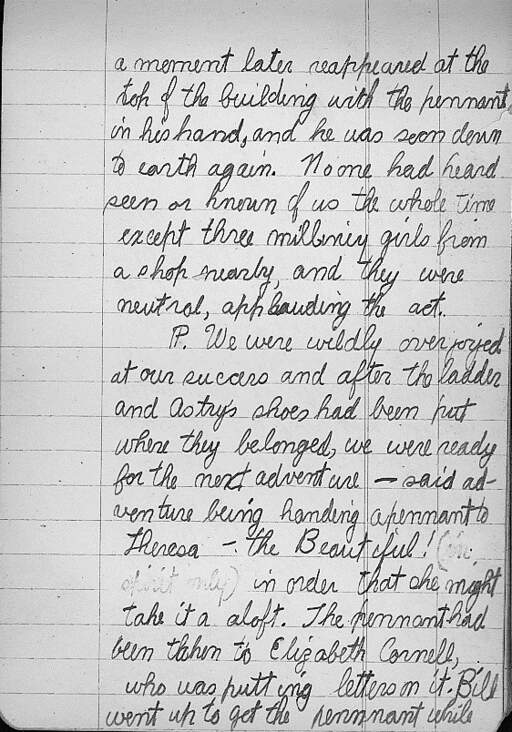 a moment later reappeared at the
top of the building with the pennant
in his hand, and he was soon down
to earth again. No one had heard
seen or known of us the whole time
except three millinery girls from
a shop nearby, and they were
neutral, applauding the act.
P. We were wildly overjoyed
at our success and after the ladder
and Astry's shoes had been put
where they belonged, we were ready
for the next adventure — said ad-
venture being handing a pennant to
Theresa - the Beautiful! (in
spirit only) in order that she might
take it a aloft. The pennant had
been taken to Elizabeth Cornell,
who was putting letters on it. Bill
went up to get the pennnant while